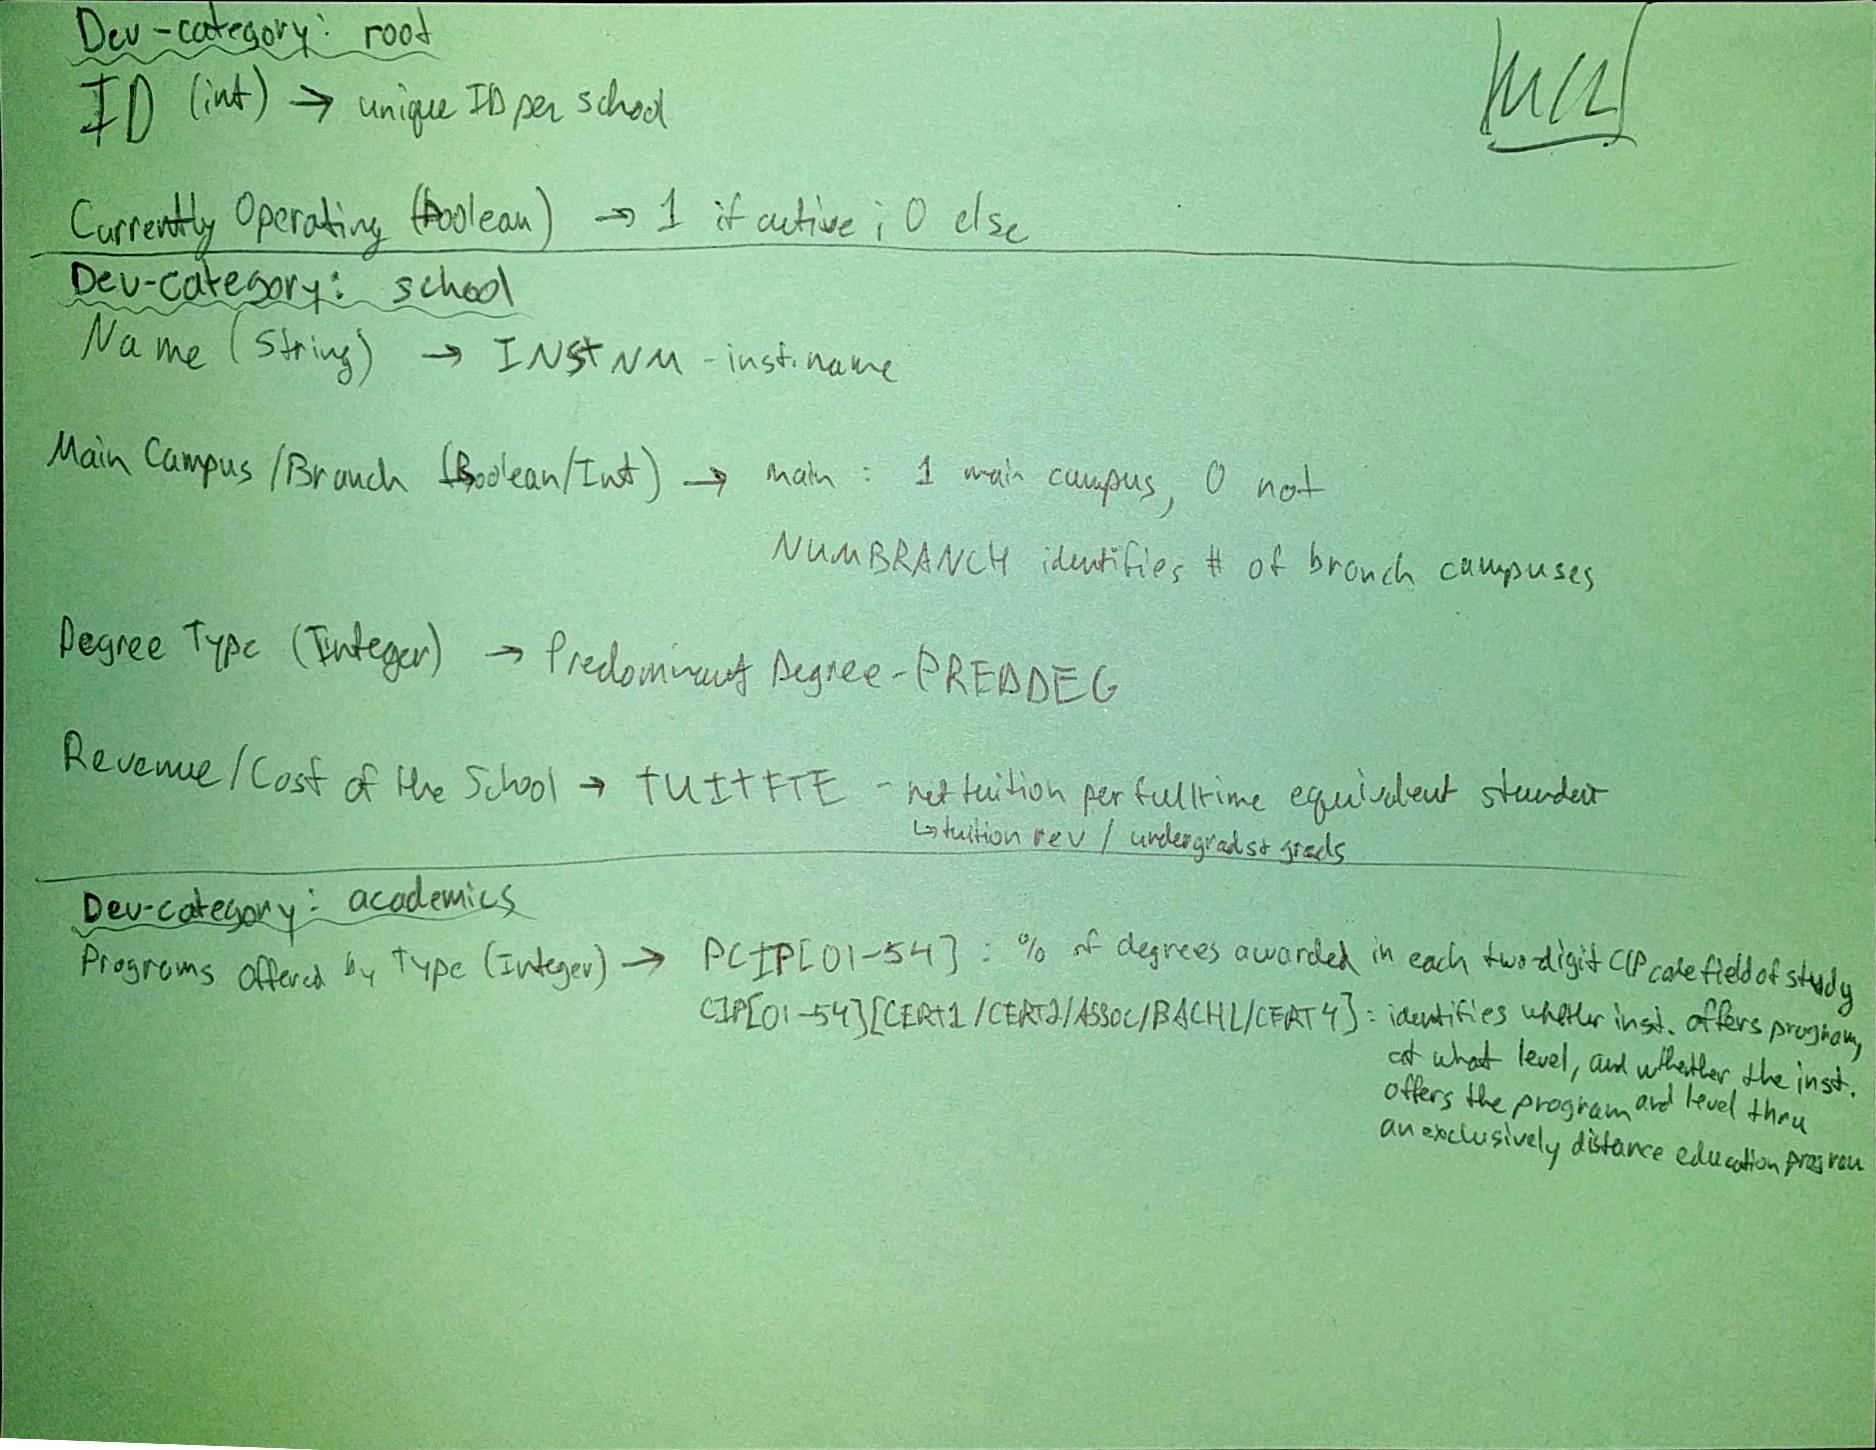 Dev-category: root
ID (int) → unique ID per school
Currently Operating (boolean) → 1 if active; 0 else
Dev-category: school
Name (String) → INSTNM - inst. name
Main Campus/Branch (Boolean/Int) → main : 1 main campus, 0 not
NUMBRANCH identifies # of branch campuses
Degree Type (Integer) → Predominant Degree - PREDDEG
Revenue/Cost of the School → TUITFTE - net tuition per fulltime equivalent student
↳ tuition rev / undergrads + grads
Dev-category: academics
Programs offered by Type (Integer) → PCIP[01-54] : % of degrees awarded in each two-digit CIP code field of study
CIP[01-54][CERT1/CERT2/ASSOC/BACHL/CERT4] : identifies whether inst. offers program,
at what level, and whether the inst.
offers the program and level thru
an exclusively distance education program